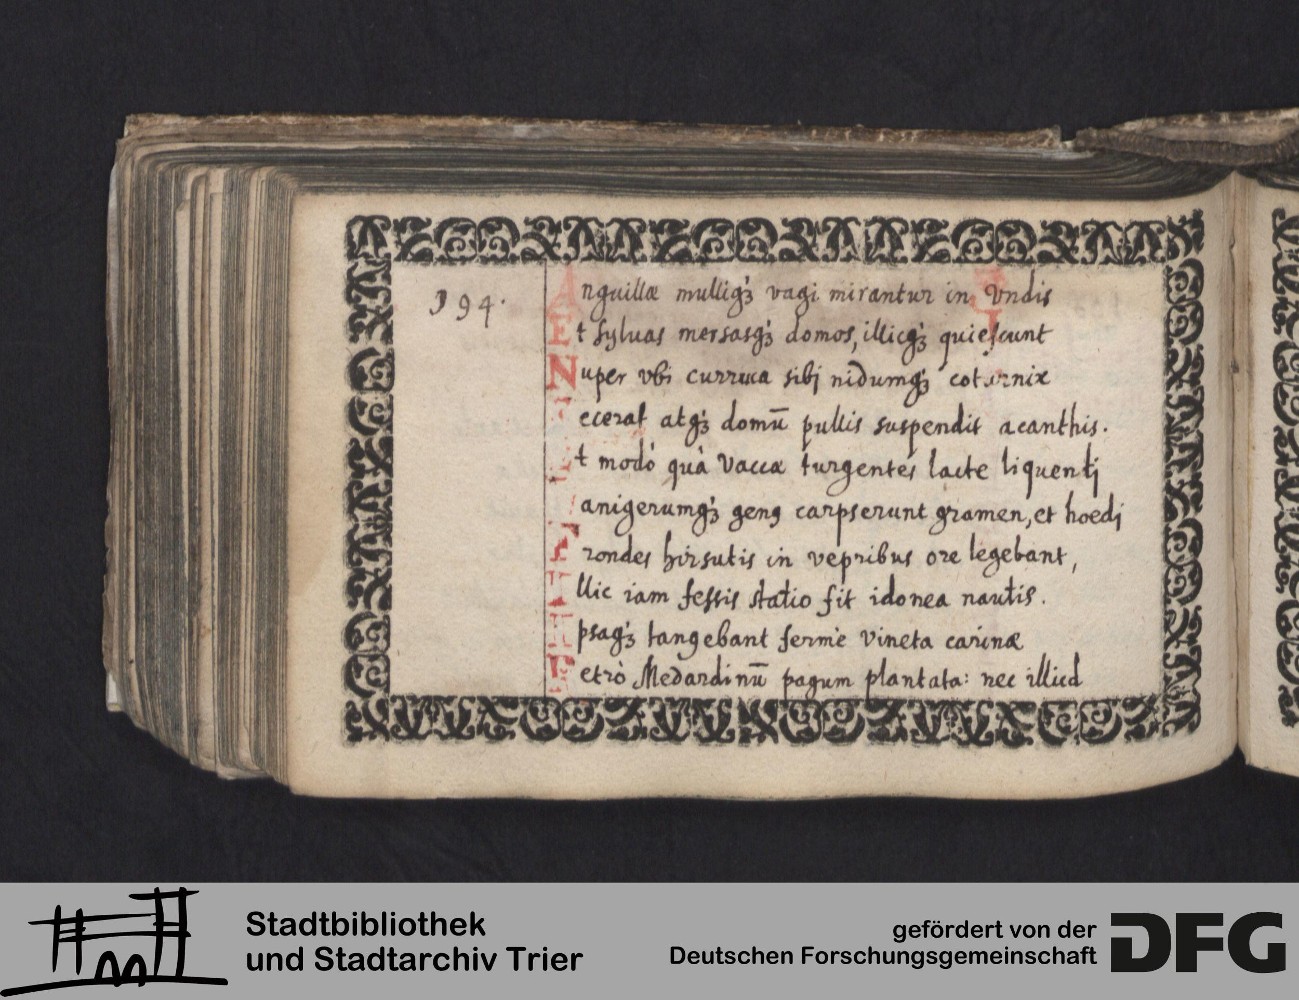 394.
Anguillæ mulligꝫ vagi mirantur in Vndis
Et syluas mersasgꝫ domos, illicgꝫ quiescunt
Nuper vbi curruca sibj nidumgꝫ coturnix
ecerat atgꝫ domū pullis suspendit acanthis.
t modò quà Vaccæ turgentes lacte liquentj
anigerumgꝫ genꝰ carpserunt gramen, et hoedj
Frondes hirsutis in vepribus ore legebant,
Illic iam fessis statio fit idonea nautis.
Ipsagꝫ tangebant fermè vineta carinæ
etrò Medardinū pagum plantata: nec illud
Stadtbibliothek
und Stadtarchiv Trier
gefördert von der
Deutschen Forschungsgemeinschaft
DFG